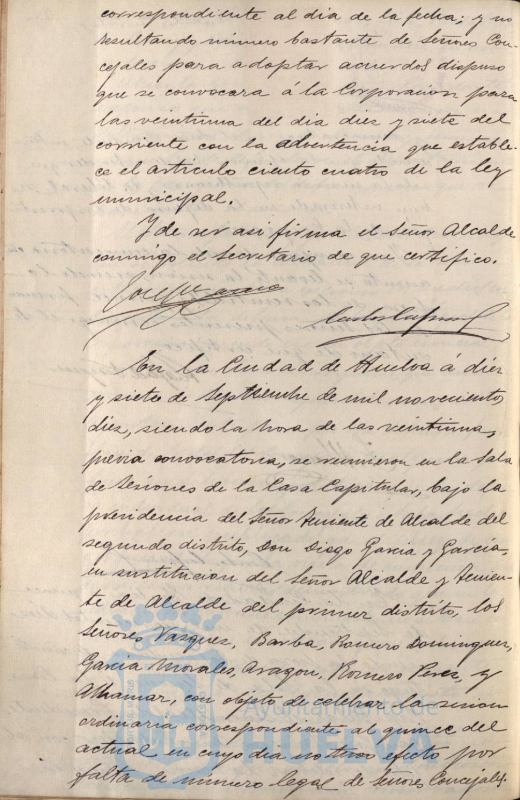 correspondiente al dia de la fecha; y no
resultando número bastante de Señores Con-
cejales para adoptar acuerdos dispuso
que se convocara á la Corporacion para
las veintiuna del dia diez y siete del
corriente con la advertencia que estable-
ce el articulo ciento cuatro de la ley
municipal.
Y de ser asi firma el Señor Alcalde
conmigo el Secretario de que certifico.
En la Ciudad de Huelva á diez
y siete de Septiembre de mil novecientos
diez, siendo la hora de las veintiuna,
previa convocatoria, se reunieron en la Sala
de Sesiones de la Casa Capitular, bajo la
presidencia del Señor Teniente de Alcalde del
segundo distrito, Don Diego Garcia y Garcia,
en sustitucion del Señor Alcalde y Tenien-
te de Alcalde del primer distrito, los
Señores Vazquez, Barba, Romero Dominguez,
Garcia Morales, Aragon, Romero Perez, y
Alhamar, con objeto de celebrar la sesion
ordinaria correspondiente al quince del
actual en cuyo dia no tuvo efecto por
falta de número legal de Señores Concejales.
Ayuntamiento de
HUELVA